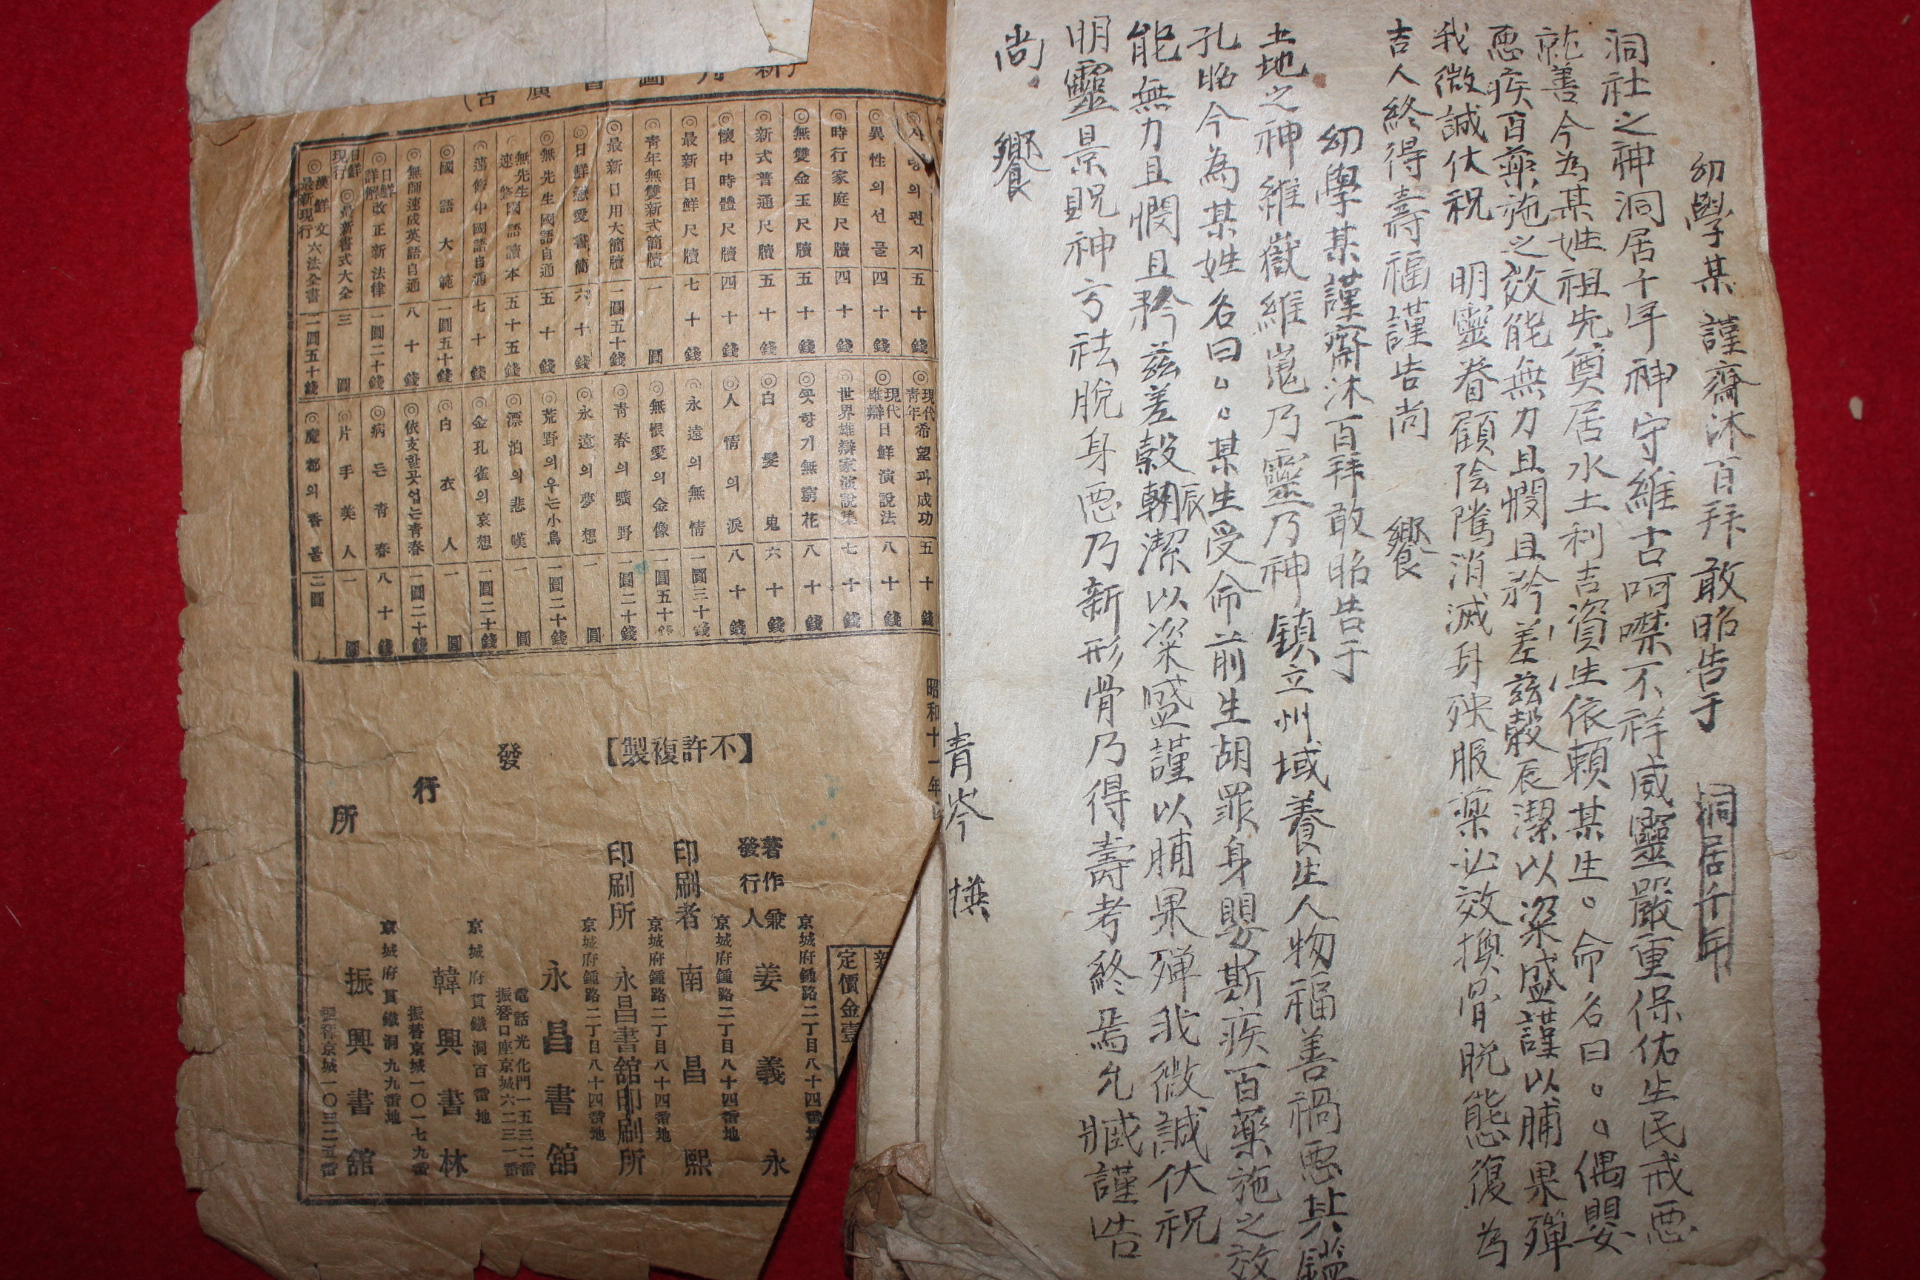 幼學某 謹齋沐百拜 敢昭告于 洞居千年
洞社之神洞居千年神守維古呵噤不祥威靈嚴重保佑生民戒惡
就善今為某姓祖先奠居水土利吉資生依賴某生。命名曰。。偶嬰
惡疾百藥施之效能無力且憫且矜差茲穀辰潔以粢盛謹以脯果殫
我微誠伏祝 明靈眷顧陰騭消滅身殃服藥必效換骨脫態復為
吉人終得壽福謹告尚 饗
幼學某謹齋沐百拜敢昭告于
土地之神維嶽維嵬乃靈乃神鎮立州域養生人物福善禍惡其鑑
孔昭今為某姓名曰。。某生受命前生胡罪身嬰斯疾百藥施之效
能無力且憫且矜茲差穀朝辰潔以粢盛謹以脯果殫我微誠伏祝
明靈景貺神方祛脫身惡乃新形骨乃得壽考終焉允臧謹告
尚 饗
青岑 撰
◎異性의선물 四十錢
◎時行家庭尺牘 四十錢
◎無雙金玉尺牘 五十錢
◎新式普通尺牘 五十錢
◎懷中時體尺牘 四十錢
◎最新日鮮尺牘 七十錢
◎靑年無雙新式簡牘 一圓
◎最新日用大簡牘 一圓五十錢
◎日鮮戀愛書簡 六十錢
◎無先生國語自通 五十錢
◎無先生速修國語讀本 五十五錢
◎速修中國語自通 七十錢
◎國語大範 一圓五十錢
◎無師速成英語自通 八十錢
◎日鮮詳解改正新法律 一圓二十錢
日鮮現行◎最新書式大全 三圓
◎漢鮮文最新現行六法全書 二圓五十錢
◎現代靑年希望과成功 五十錢
◎現代雄辯日鮮演說法 八十錢
◎世界雄辯家演說集 七十錢
◎못항기無窮花 八十錢
◎白髮鬼 六十錢
◎人情의淚 八十錢
◎永遠의無情 一圓三十錢
◎無恨愛의金像 一圓五十錢
◎靑春의曠野 一圓二十錢
◎永遠의夢想 一圓
◎荒野의우는小鳥 一圓二十錢
◎漂泊의悲嘆 一圓
◎金孔雀의哀想 一圓二十錢
◎白衣人 一圓
◎依支할곳업는靑春 一圓二十錢
◎病든靑春 八十錢
◎片手美人 一圓
◎魔都의香불 二圓
昭和十一年
【不許複製】
定價金壹
京城府鍾路二丁目八十四番地
著作兼發行人 姜義永
京城府鍾路二丁目八十四番地
印刷者 南昌熙
京城府鍾路二丁目八十四番地
印刷所 永昌書館印刷所
京城府鍾路二丁目八十四番地
發行所
永昌書館
電話光化門一五三二番
振替口座京城六二三一番
京城府貫鐵洞百番地
韓興書林
振替京城一〇一七九番
京城府貫鐵洞九九番地
振興書館
振替京城一〇三二五番